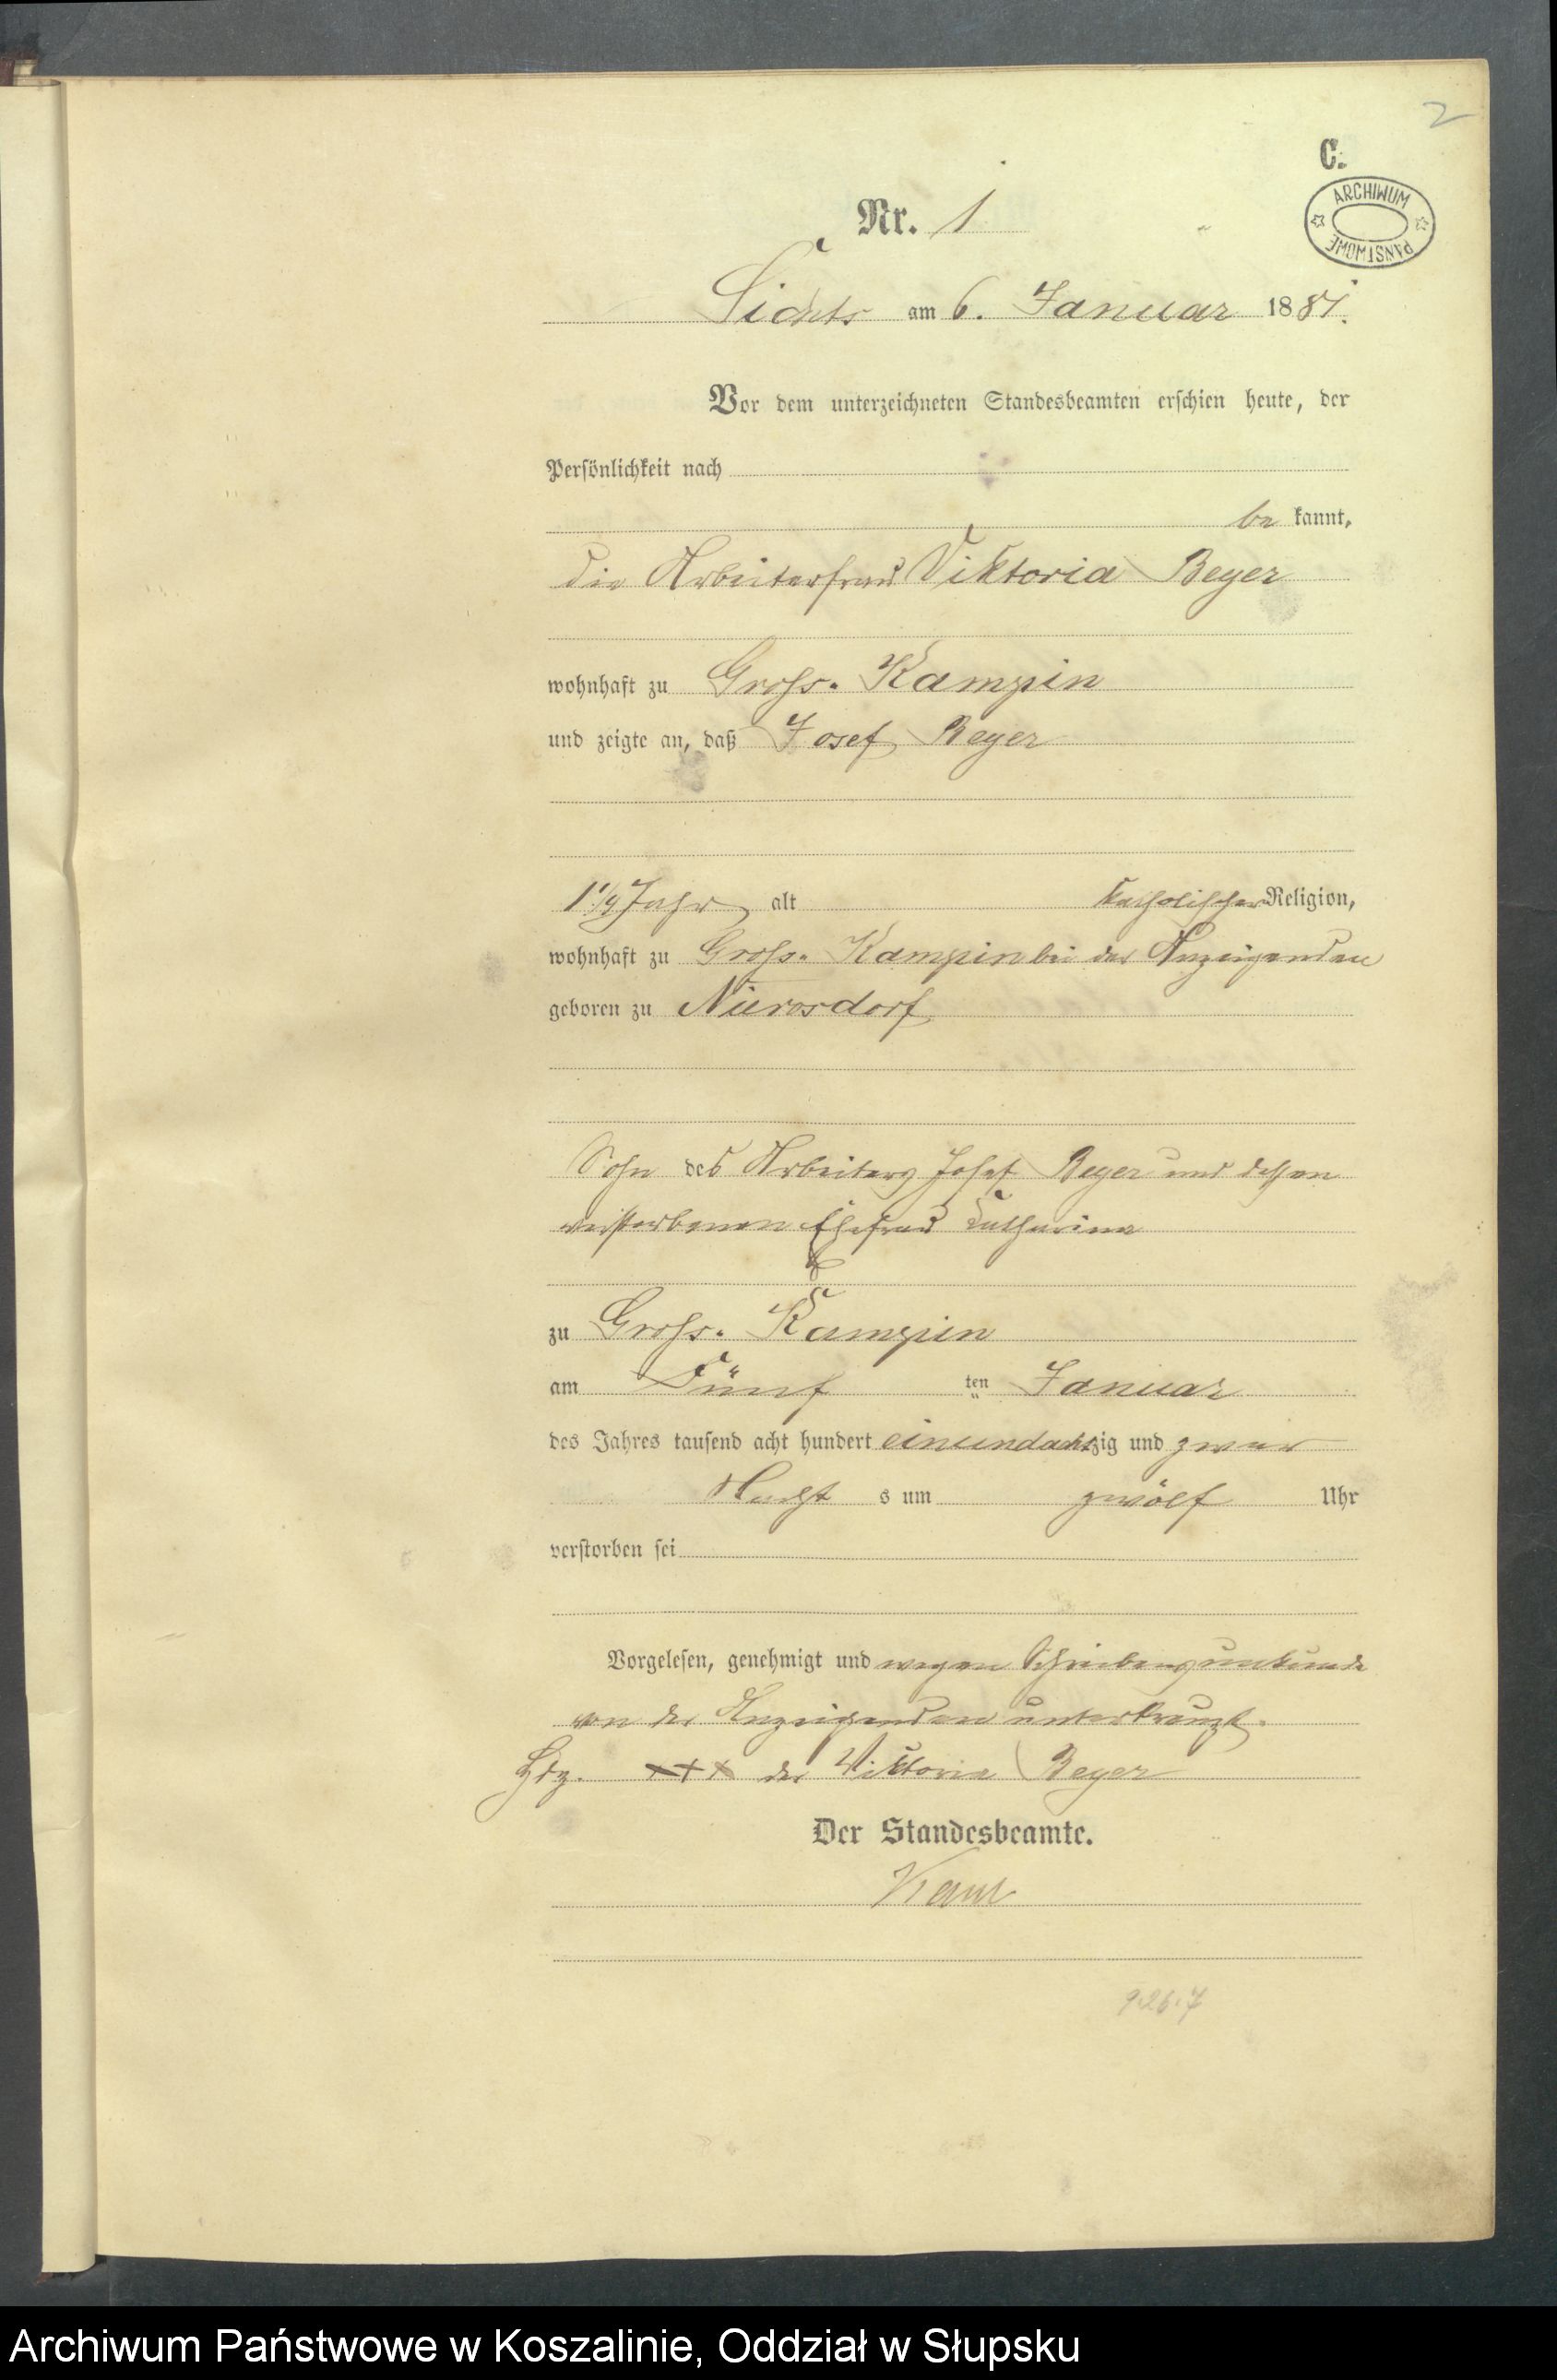 2
C.
ARCHIWUM PAŃSTWOWE
Nr. 1
am 6. Januar 1881.
Vor dem unterzeichneten Standesbeamten erschien heute, der
Persönlichkeit nach
be kannt,
die Arbeiterfrau Viktoria Beyer
wohnhaft zu Gross-Kampin
und zeigte an, daß Josef Beyer
Jahr alt katholischer Religion,
wohnhaft zu Gross-Kampin bei der Anzeigenden
geboren zu
Sohn des Arbeiters Josef Beyer und dessen
verstorbenen Ehefrau Katharina
zu Gross-Kampin
am Fünf ten Januar
des Jahres tausend acht hundert einundachtzig und zwar
Nacht s um zwölf Uhr
verstorben sei
Vorgelesen, genehmigt und wegen Schreibensunkunde
von der Anzeigenden unterkreuzt.
Hdz. +++ der Viktoria Beyer
Der Standesbeamte.
Archiwum Państwowe w Koszalinie, Oddział w Słupsku